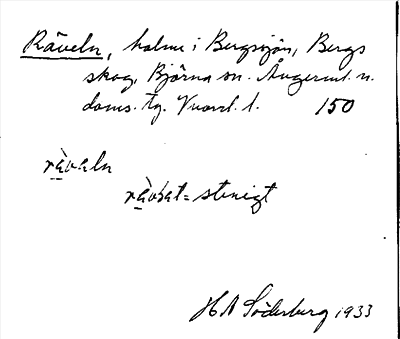 Räveln, holme i Bergsjön, Bergs
skog, Björna sn. Ångerml. n.
doms. tg. 150
rävaln
rävsat = stenigt
H A Söderberg 1933